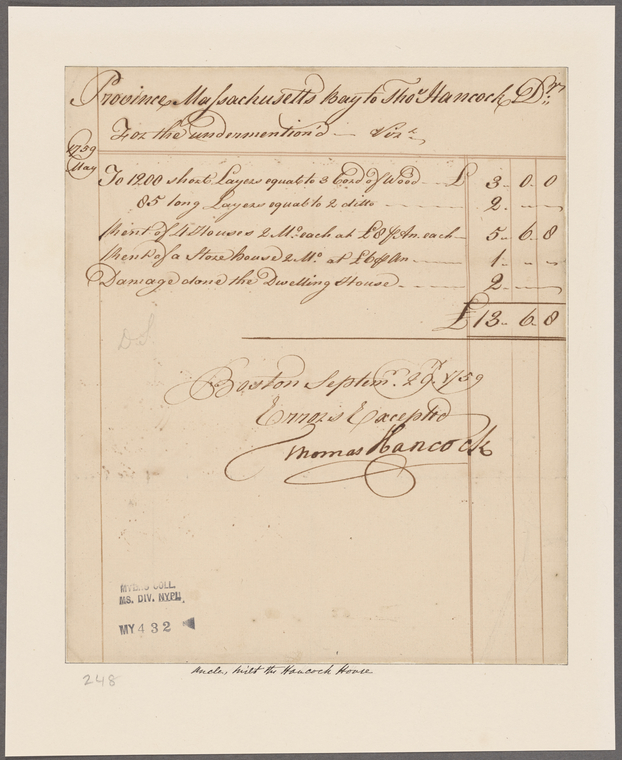 Province Massachusetts Bay to Thos Hancock Dr
For the undermention'd Vizt
1759
May
To 1200 short Layers equal to 3 Cord of Wood £ 3. 0. 0
85 long Layers equal to 2 ditto 2. - -
Rent of 4 Houses 2 Mo. each at £8 ⅌ An. each 5. 6. 8
Rent of a Store house 2 Mo. at £6 ⅌ An 1. - -
Damage done the Dwelling House 2. - -
£ 13. 6. 8
Boston Septemr. 29 1759
Errors Excepted
Thomas Hancock
MYERS COLL.
MS. DIV. NYPL.
MY 432
248
uncle, built the Hancock House